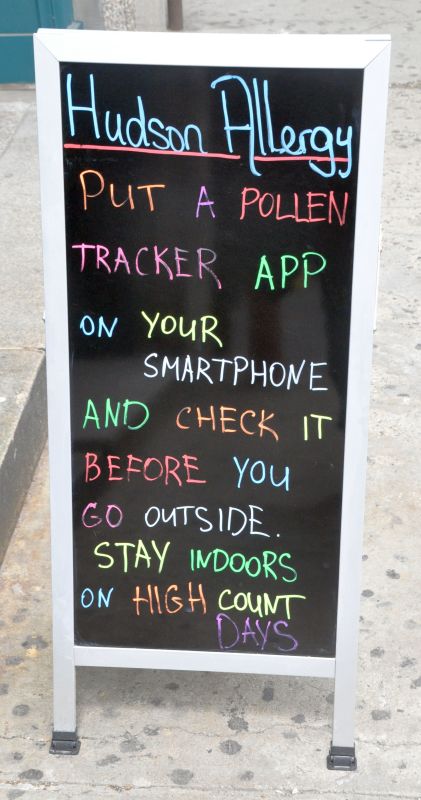 Hudson Allergy
PUT A POLLEN
TRACKER APP
ON YOUR
SMARTPHONE
AND CHECK IT
BEFORE YOU
GO OUTSIDE.
STAY INDOORS
ON HIGH COUNT
DAYS